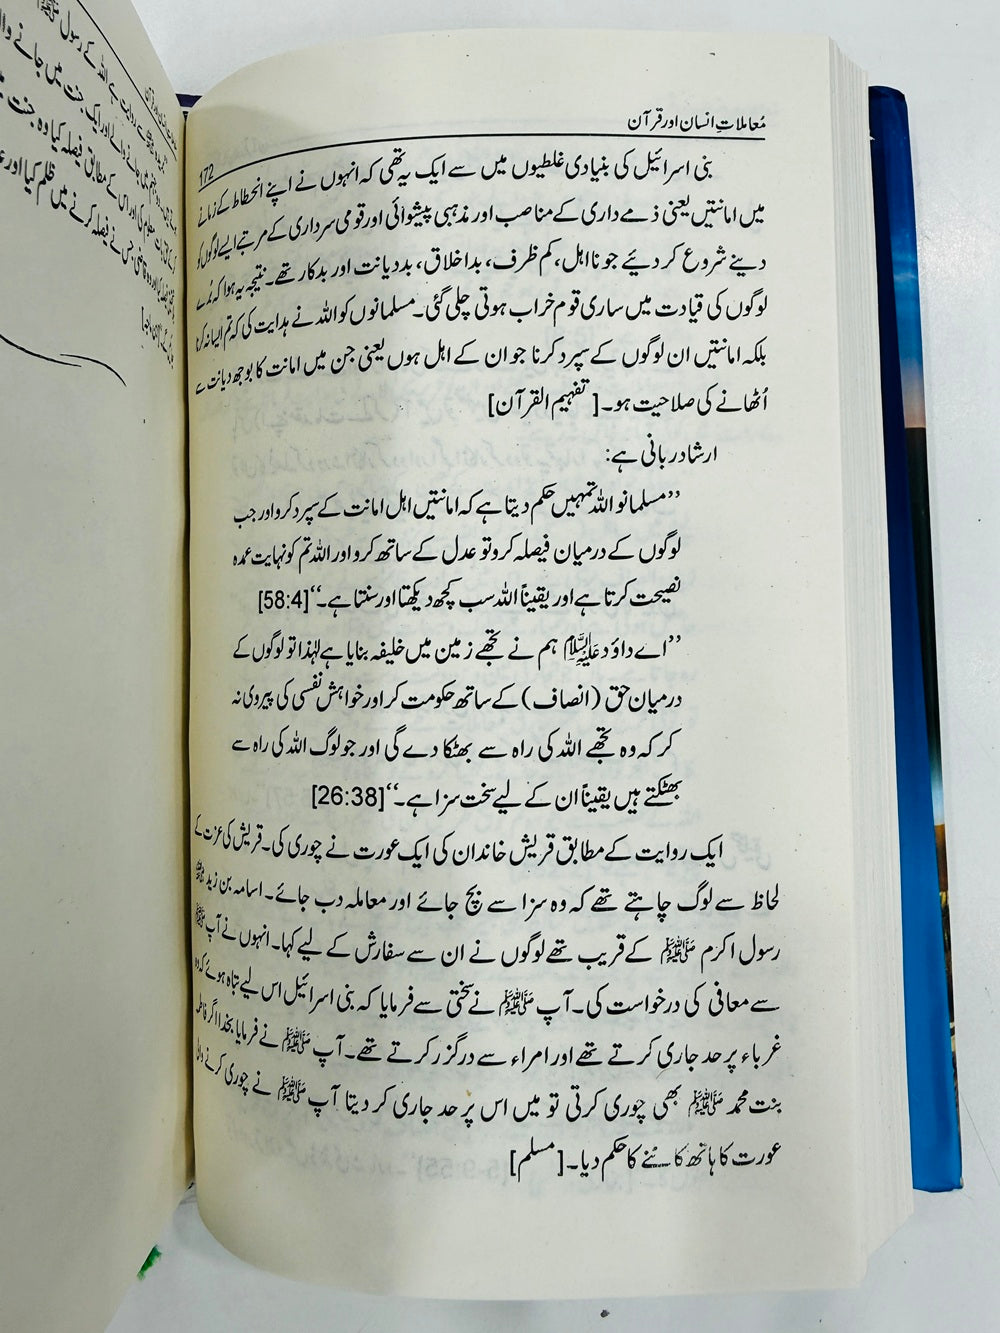 مُعاملاتِ انسان اور قرآن
172
بنی اسرائیل کی بنیادی غلطیوں میں سے ایک یہ تھی کہ انہوں نے اپنے انحطاط کے زمانے
میں امانتیں یعنی ذمے داری کے مناصب اور مذہبی پیشوائی اور قومی سرداری کے مرتبے ایسے لوگوں کو
دینے شروع کر دیئے جو نااہل، کم ظرف، بداخلاق، بددیانت اور بدکار تھے۔ نتیجہ یہ ہوا کہ بُرے
لوگوں کی قیادت میں ساری قوم خراب ہوتی چلی گئی۔ مسلمانوں کو اللہ نے ہدایت کی کہ تم ایسا نہ کرنا
بلکہ امانتیں ان لوگوں کے سپرد کرنا جو ان کے اہل ہوں یعنی جن میں امانت کا بوجھ دیانت سے
اُٹھانے کی صلاحیت ہو۔ [تفہیم القرآن]
ارشاد ربانی ہے:
”مسلمانو اللہ تمہیں حکم دیتا ہے کہ امانتیں اہل امانت کے سپرد کرو اور جب
لوگوں کے درمیان فیصلہ کرو تو عدل کے ساتھ کرو اور اللہ تم کو نہایت عمدہ
نصیحت کرتا ہے اور یقیناً اللہ سب کچھ دیکھتا اور سنتا ہے۔“ [58:4]
”اے داؤد علیہ السلام ہم نے تجھے زمین میں خلیفہ بنایا ہے لہٰذا تو لوگوں کے
درمیان حق (انصاف) کے ساتھ حکومت کر اور خواہش نفسی کی پیروی نہ
کر کہ وہ تجھے اللہ کی راہ سے بھٹکا دے گی اور جو لوگ اللہ کی راہ سے
بھٹکتے ہیں یقیناً ان کے لیے سخت سزا ہے۔“ [26:38]
ایک روایت کے مطابق قریش خاندان کی ایک عورت نے چوری کی۔ قریش کی عزت کے
لحاظ سے لوگ چاہتے تھے کہ وہ سزا سے بچ جائے اور معاملہ دب جائے۔ اسامہ بن زید ﷺ
رسول اکرم ﷺ کے قریب تھے لوگوں نے ان سے سفارش کے لیے کہا۔ انہوں نے آپ ﷺ
سے معافی کی درخواست کی۔ آپ ﷺ نے سختی سے فرمایا کہ بنی اسرائیل اس لیے تباہ ہوئے کہ وہ
غرباء پر حد جاری کرتے تھے اور امراء سے درگزر کرتے تھے۔ آپ ﷺ نے فرمایا بخدا اگر فاطمہ
بنت محمد ﷺ بھی چوری کرتی تو میں اس پر حد جاری کر دیتا آپ ﷺ نے چوری کرنے والی
عورت کا ہاتھ کاٹنے کا حکم دیا۔ [مسلم]